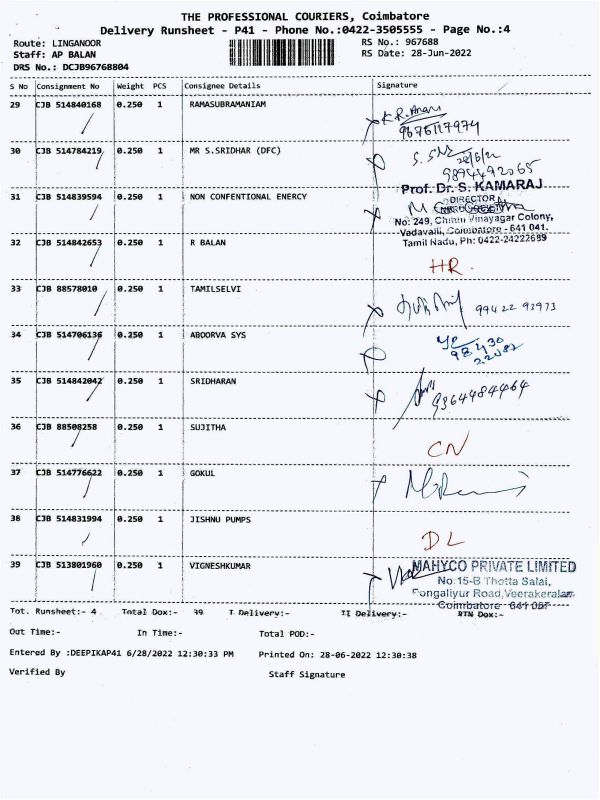 THE PROFESSIONAL COURIERS, Coimbatore
Delivery Runsheet - P41 - Phone No.:0422-3505555 - Page No.:4
Route: LINGANOOR RS No.: 967688
Staff: AP BALAN RS Date: 28-Jun-2022
DRS No.: DCJB96768804
S No Consignment No Weight PCS Consignee Details Signature
29 CJB 514840168 0.250 1 RAMASUBRAMANIAM
30 CJB 514784219 0.250 1 MR S.SRIDHAR (DFC)
28/6/22
9894492065
31 CJB 514839594 0.250 1 NON CONFENTIONAL ENERGY
Prof. Dr. S. KAMARAJ
DIRECTOR
No: 249, Chinni Vinayagar Colony,
Vadavalli, Coimbatore - 641 041.
Tamil Nadu, Ph: 0422-24222689
32 CJB 514842653 0.250 1 R BALAN
HR
33 CJB 88578010 0.250 1 TAMILSELVI
99422 92973
34 CJB 514706136 0.250 1 ABOORVA SYS
35 CJB 514842042 0.250 1 SRIDHARAN
9364484464
36 CJB 88508258 0.250 1 SUJITHA
CN
37 CJB 514776622 0.250 1 GOKUL
38 CJB 514831994 0.250 1 JISHNU PUMPS
DL
39 CJB 513801960 0.250 1 VIGNESHKUMAR
MAHYCO PRIVATE LIMITED
No:15-B Thotta Salai,
Pongaliyur Road, Veerakeralam
Coimbatore - 641 007
Tot. Runsheet:- 4 Total Dox:- 39 I Delivery:- II Delivery:- RTN Dox:-
Out Time:- In Time:- Total POD:-
Entered By :DEEPIKAP41 6/28/2022 12:30:33 PM Printed On: 28-06-2022 12:30:38
Verified By Staff Signature